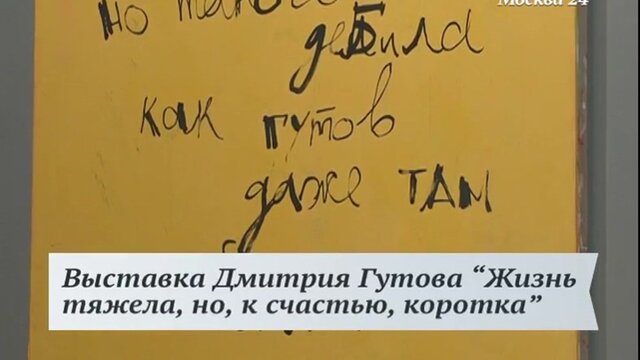 Москва 24
но
дебила
как гутов
даже там
Выставка Дмитрия Гутова “Жизнь
тяжела, но, к счастью, коротка”